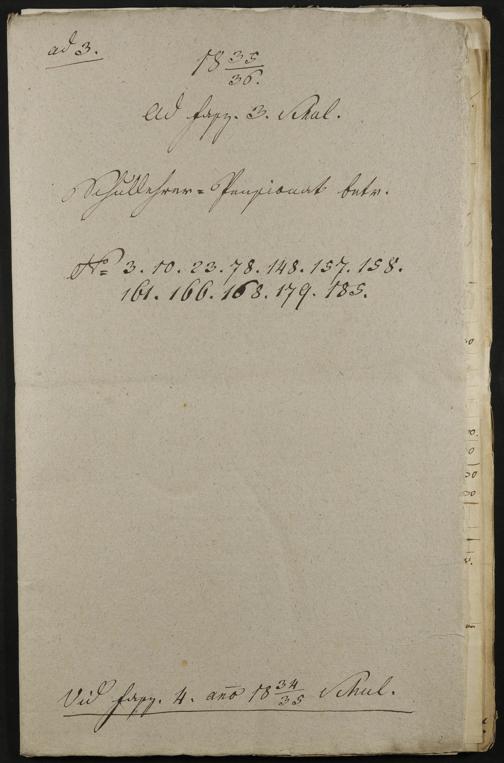 ad 3.
18 35/36.
Ad fasz. 3. Schul.
Schullehrer=Pensionat betr.
No 3. 10. 23. 78. 148. 157. 158.
161. 166. 168. 179. 185.
Vid fasz. 4. año 18 34/35 Schul.